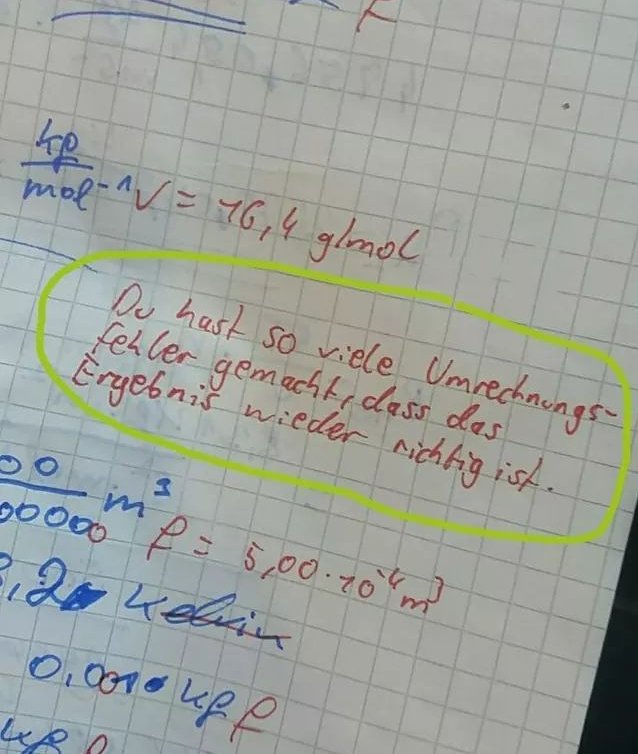 kg
mol⁻¹ √ = 16,4 g/mol
Du hast so viele Umrechnungs-
fehler gemacht, dass das
Ergebnis wieder richtig ist.
00
00000 m³ f = 5,00·10⁻⁴ m³
,2 Kelvin
0,001 kg f
kg f